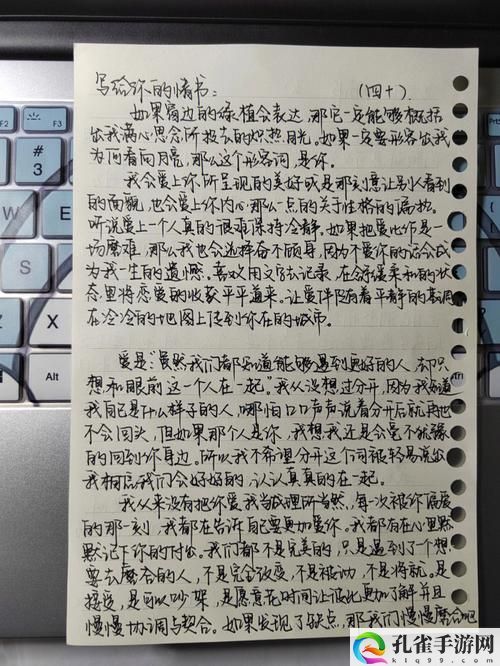 写给你的情书：（四十）
如果窗边的绿植会表达，那它一定能够概括
出我满心思念所投去的炽热目光。如果一定要形容出我
为何看向月亮，那么这个形容词，是你。
我会爱上你所呈现的美好或是那刻意让别人看到
的面貌，也会爱上你内心那么一点的关于性格的偏执。
听说爱上一个人真的很难保持冷静，如果把爱比作是一
场磨难，那么我也会选择奋不顾身，因为不爱你的话会成
为我一生的遗憾。喜欢用文字去记录，在舒缓柔和的状
态里将恋爱的收获平平道来。让爱伴随着平静的基调
在冷冷的地图上传到你在的城市。
爱是：“虽然我们都知道能够遇到更好的人，却只
想和眼前这一个人在一起。”我从没想过分开，因为我知道
我自己是什么样子的人，哪怕口口声声说着分开后就再也
不会回头，但如果那个人是你，我想我还是会毫不犹豫
的回到你身边。所以我不希望分开这个词被轻易说出
我相信我们会好好的，认认真真的在一起。
我从来没有把你爱我当成理所当然，每一次被你偏爱
的那一刻，我都在告诉自己要更加爱你。我都有在心里默
默记下你的付出。我们都不是完美的，只是遇到了个想
要去磨合的人，不是完全改变，不是被动，不是将就。是
接受，是可以吵架，是愿意花时间让彼此更加了解并且
慢慢协调与契合。如果发现了缺点，那我们慢慢磨合吧
孔雀手游网
klq99.com
F2
F3
#
3